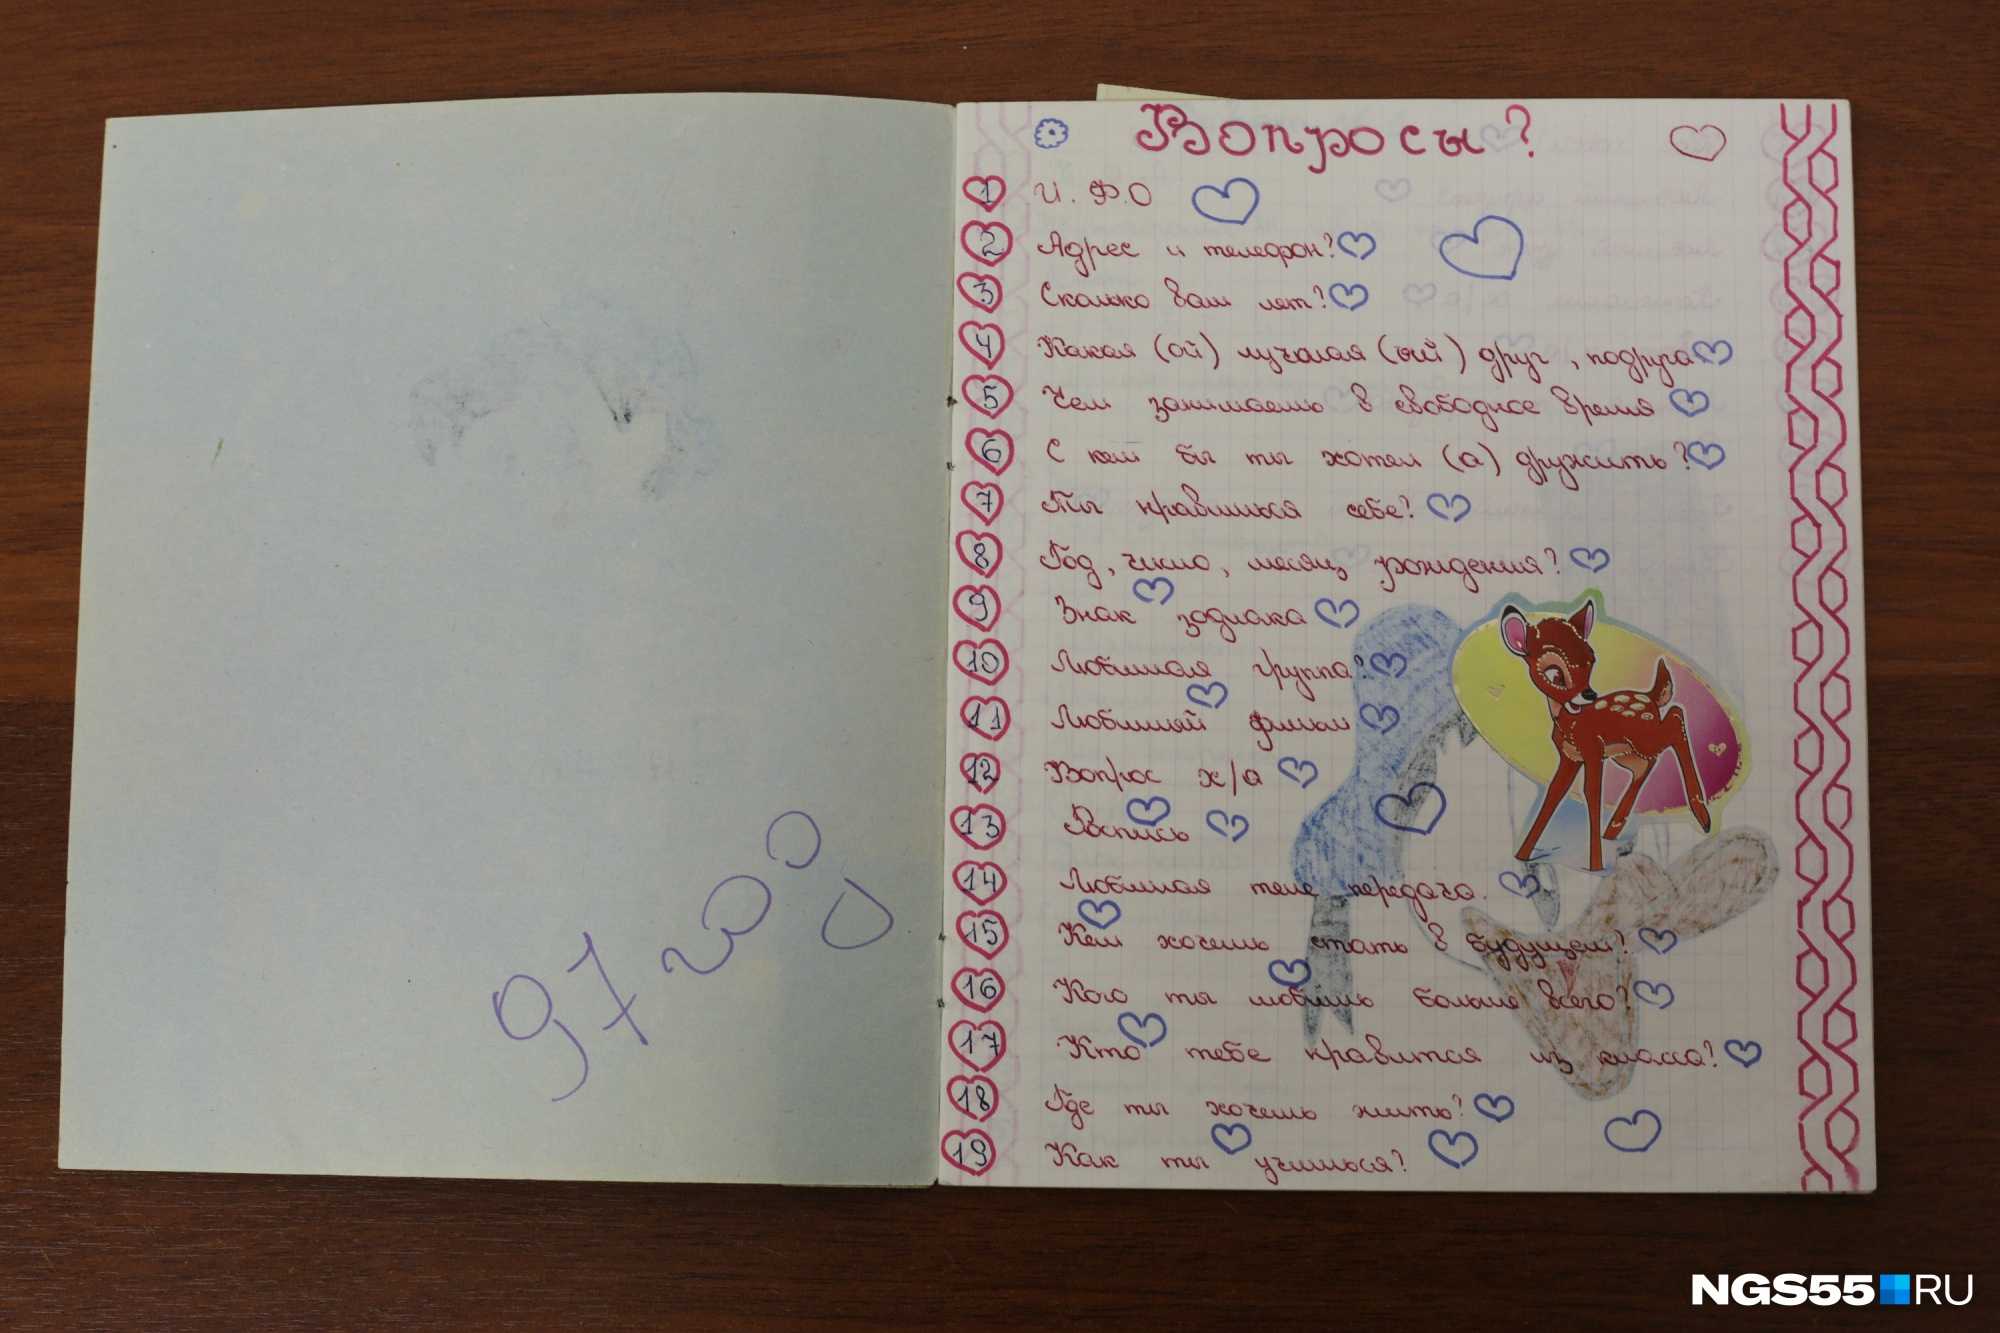 97 год
Вопросы?
1 И. Ф.О
2 Адрес и телефон?
3 Сколько вам лет?
4 Какая (ой) лучшая (ый) друг, подруга
5 Чем занимаешь в свободное время
6 С кем бы ты хотел (а) дружить?
7 Ты нравишься себе?
8 Год, число, месяц рождения?
9 Знак зодиака
10 Любимая группа?
11 Любимый фильм
12 Вопрос х/а
13 Роспись
14 Любимая теле передача.
15 Кем хочешь стать в будущем?
16 Кого ты любишь больше всего?
17 Кто тебе нравится из класса?
18 Где ты хочешь жить?
19 Как ты учишься?
NGS55.RU